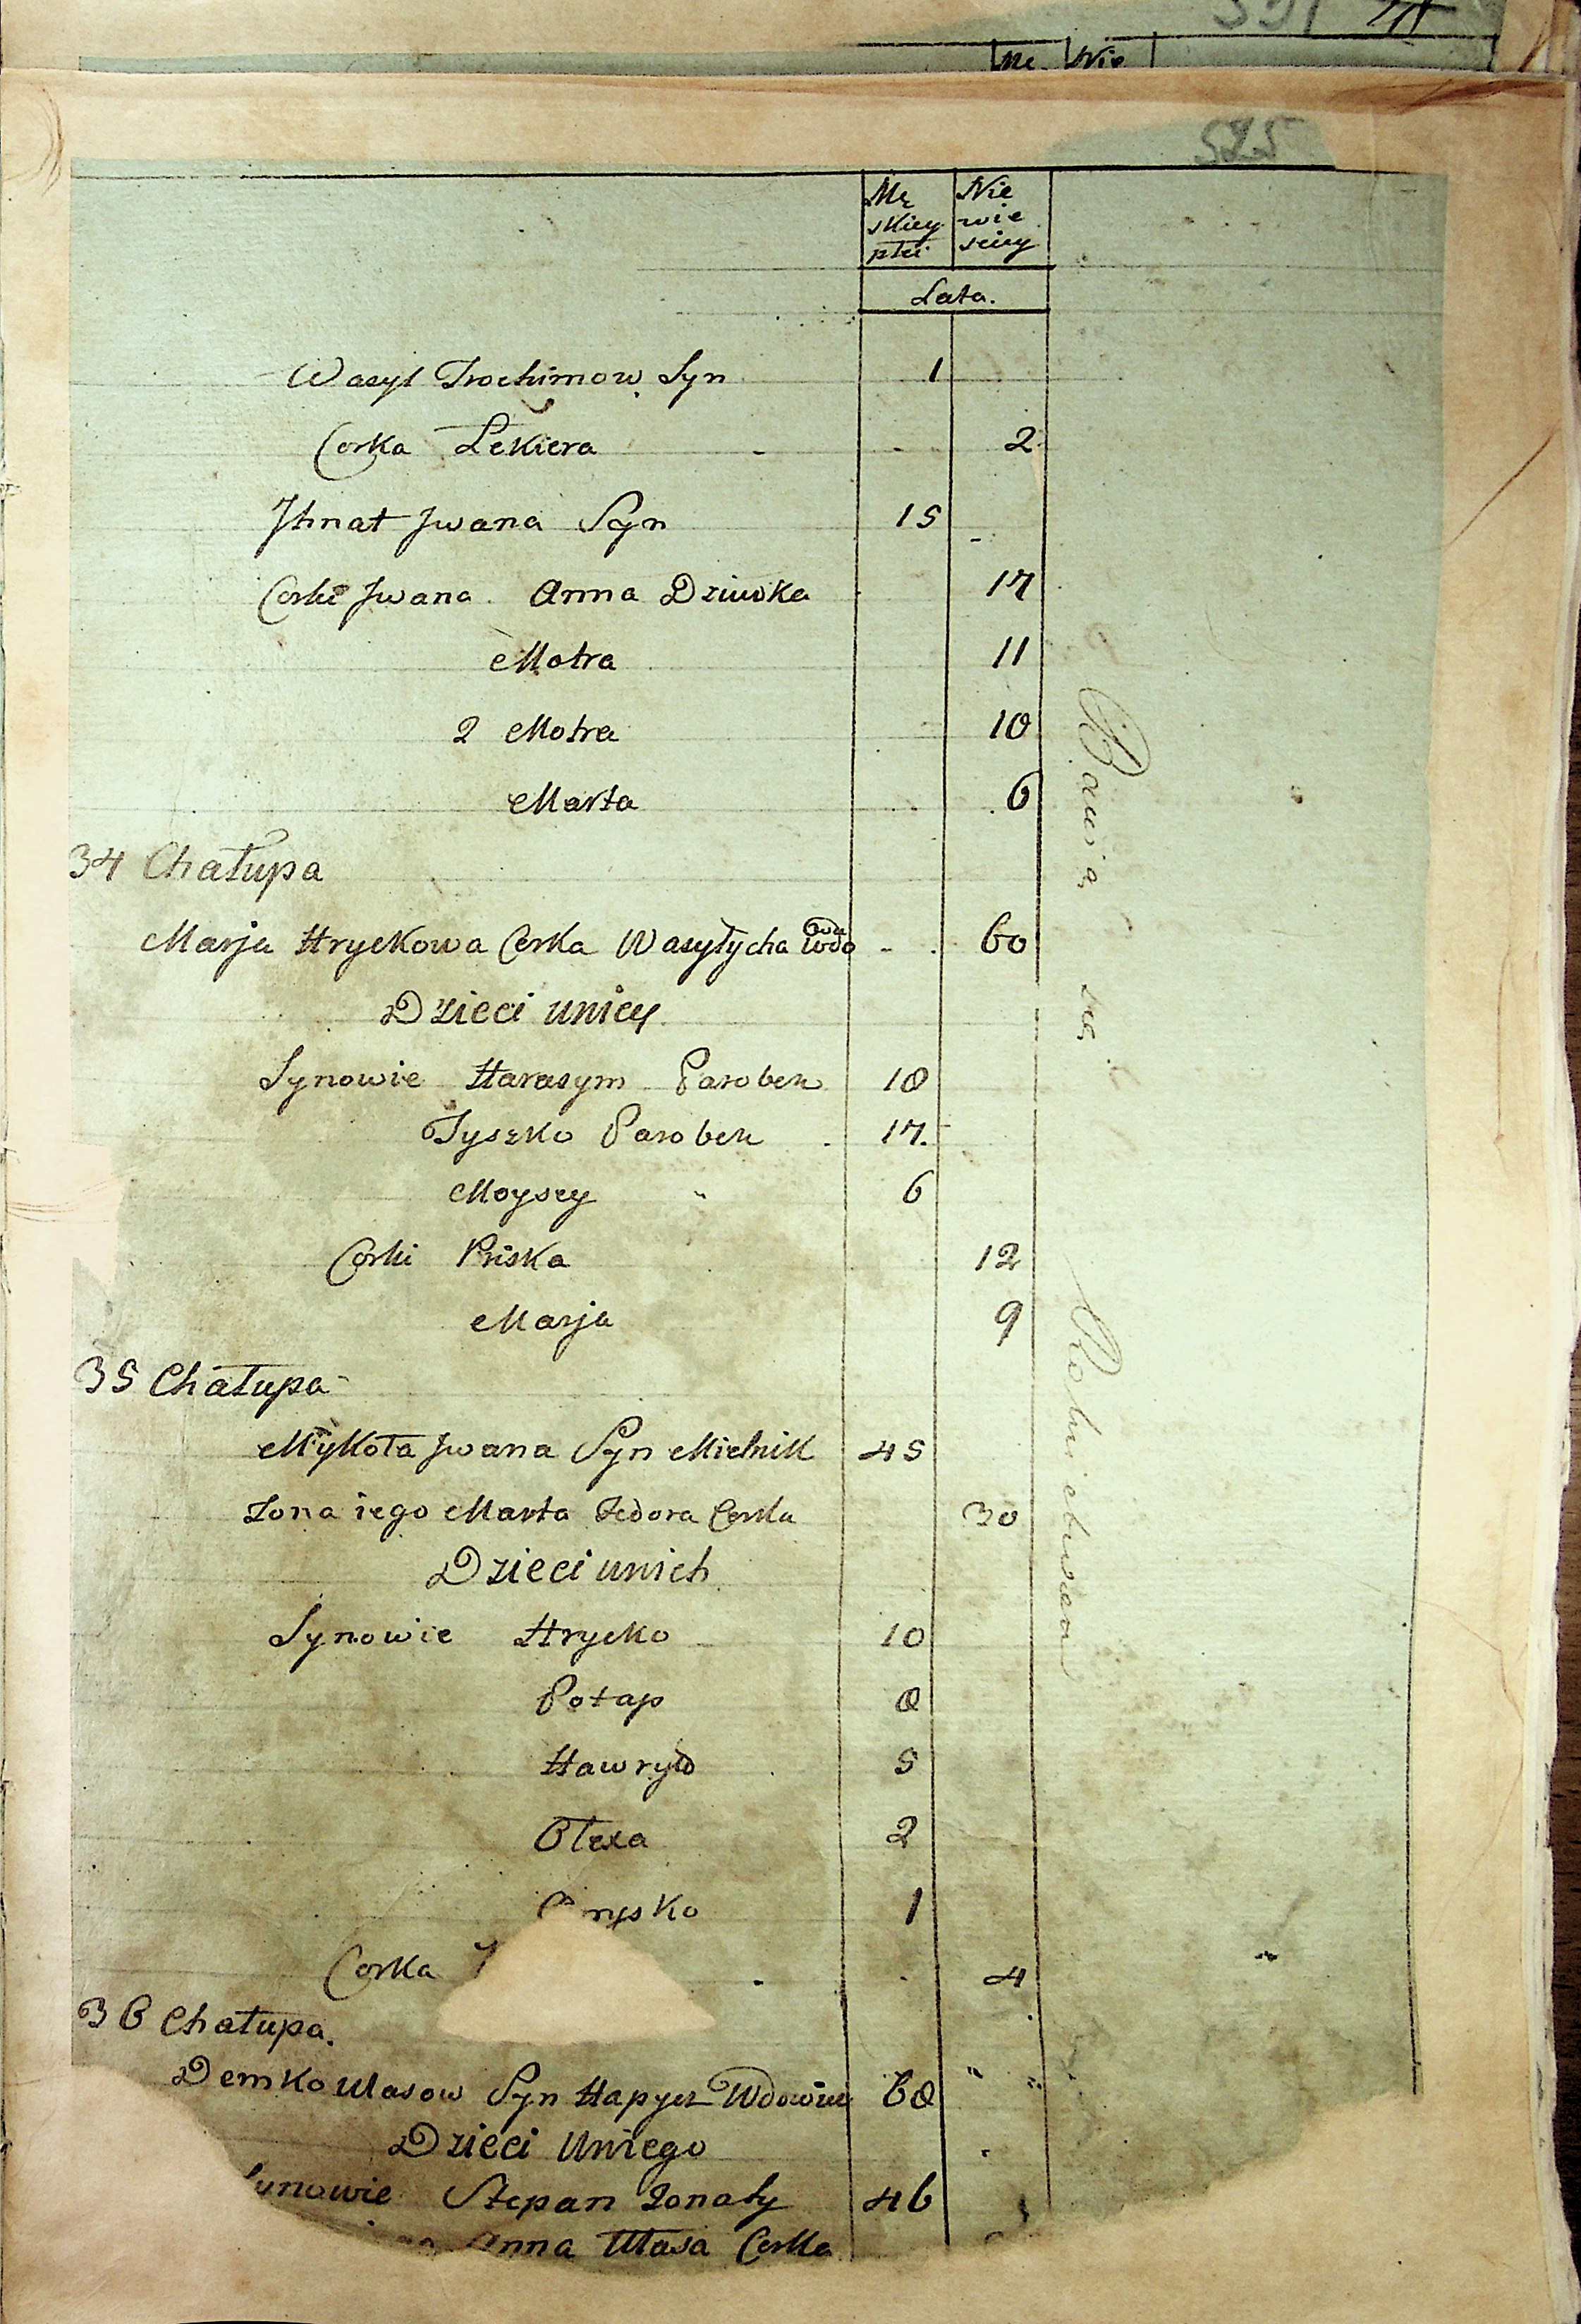 525
Mę Nie
skiey wie
płci sciey
Lata.
Wasyl Trochimow Syn 1
Corka Lekiera 2
Jhnat Jwana Syn 15
Corki Jwana Anna Dziwka 17
Motra 11
2 Motra 10
Marta 6
34 Chałupa
Marja Hryckowa Corka Wasyłycha Wdowa 60
Dzieci uniey
Synowie Harasym Parobek 18
Tyszko Parobek 17
Moysey 6
Corki Priska 12
Marja 9
35 Chałupa
Mykoła Jwana Syn Mielnik 45
Zona iego Marta Fedora Corka 30
Dzieci unich
Synowie Hrycko 10
Potap 8
Hawryło 5
Olexa 2
1
Corka 4
36 Chałupa.
Demko Ułasow Syn Wdowiec 68
Dzieci Uniego
Synowie Stepan Zonaty 46
Anna Ułasa Corka